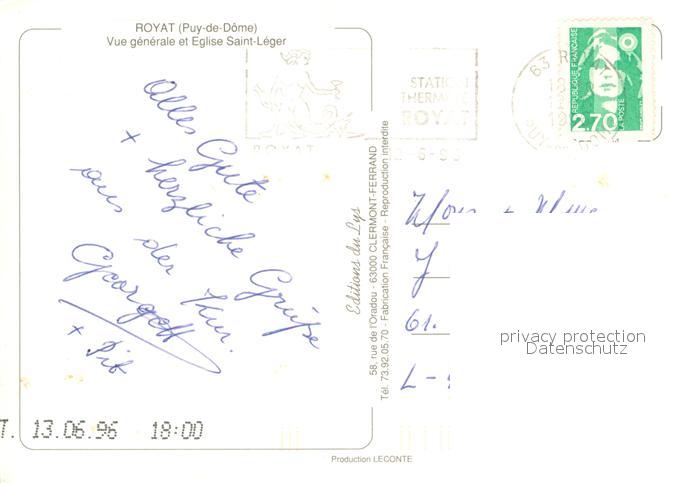 ROYAT (Puy-de-Dôme)
Vue générale et Eglise Saint-Léger
ROYAT
STATION
THERMALE
ROYAT
63 R
RÉPUBLIQUE FRANÇAISE
2,70
LA POSTE
Alles Gute
+ herzliche Grüße
aus der Kur.
Georgett
+ Pit
Editions du Lys
58, rue de l'Oradou - 63000 CLERMONT-FERRAND
Tél. 73.92.05.70 - Fabrication Française - Reproduction interdite
61.
L-
privacy protection
Datenschutz
T. 13.06.96 18:00
Production LECONTE